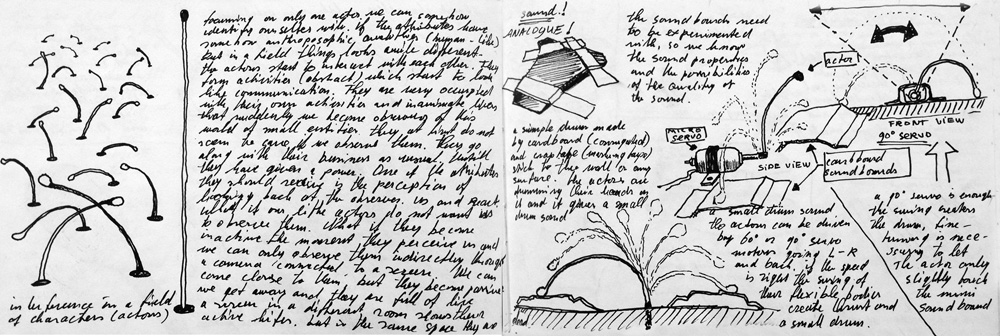 focussing on only one actor, we can somehow
identify ourselves with, if the attributes have
somehow anthroposophic qualities (human-like)
but in a field things looks quite different
the actors start to interact with each other. They
form activities (abstract) which start to look
like communication. They are very occupied
with their own activities and inanimate lives
that suddenly we become observing of this
world of small entities. they at first do not
seem to care, if we observe them. they go
along with their business as usual. Untill
they have given a power. One of the attributes
they should
is the perception of
back of the observer. us and react.
what if our little actors do not want us
to observe them. What if they become
inactive the moment they perceive us and
we can only observe them indirectly through
a camera connected to a screen. We can
come close to them but they become passive
we get away and they are full of life
a screen in a different room shows their
active lifes. but in the same space they are
interference in a field
of characters (actors)
sound!
ANALOGUE!
a simple drum made
by cardboard (corrugated)
and crap tape (masking tape)
stick to the wall or any
surface. the actors are
humming their heads on
it and it gives a small
drum sound
the sound boards need
to be experimented
with, so we know
the sound properties
and the possibilities
of the quality of
the sound.
actor
MICRO
SERVO
SIDE VIEW
cardboard
soundboards
FRONT VIEW
90° SERVO
a small drum sound
the actors can be driven
by 60° or 90° servo
motors going L-R
and back. if the speed
is right the swing of
their flexible bodies
create thrust and
a small drum.
a 90° servo is enough
the swing beaters
the drum, fine-
tuning is nece-
ssary to let
the actor only
slightly touch
the mini
sound board